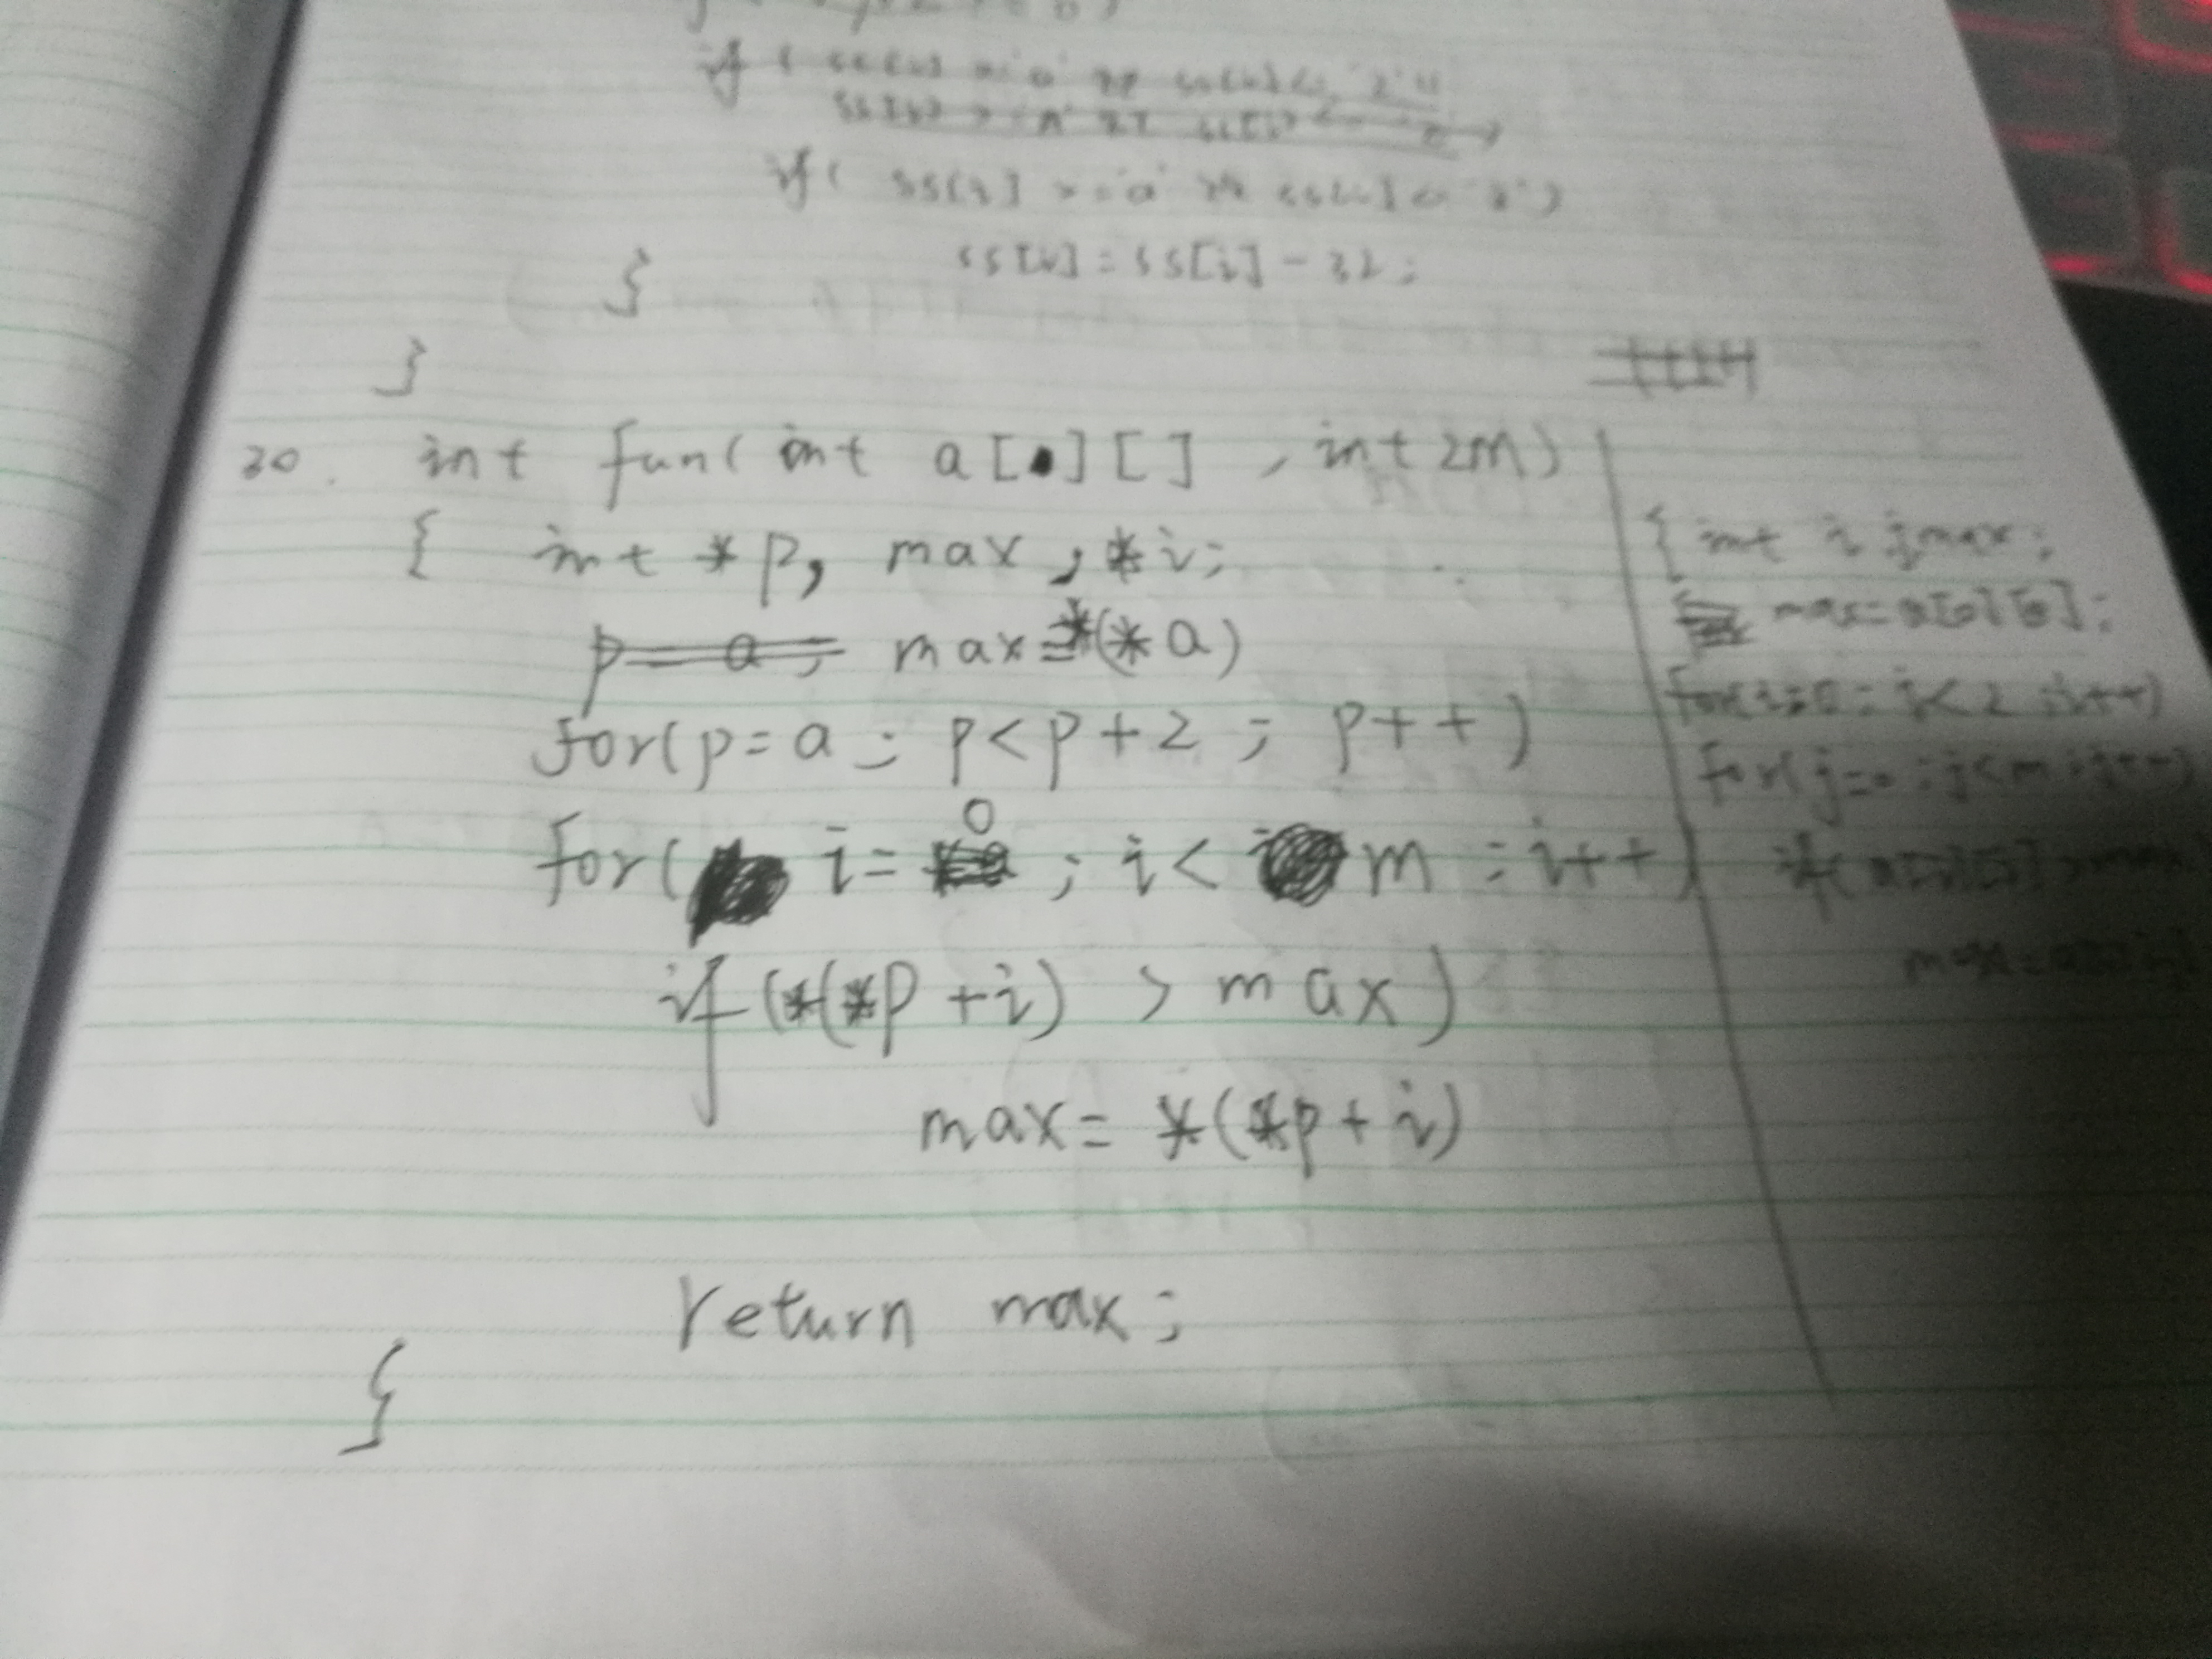 if( ss[i] >='a' && ss[i]<= 'z')
ss[i]=ss[i]-32;
}
}
30. int fun( int a[][] , int 2m)
{ int *p, max , *i;
p=a; max=*(*a)
for(p=a; p<p+2; p++)
for( i=0; i< m ; i++)
if(*(*p+i) > max)
max= *(*p+i)
return max;
}
{ int i j max;
max=a[0][0];
for(i=0; i<2 ;i++)
for(j=0; j<m ;j++)
if( a[i][j] >max